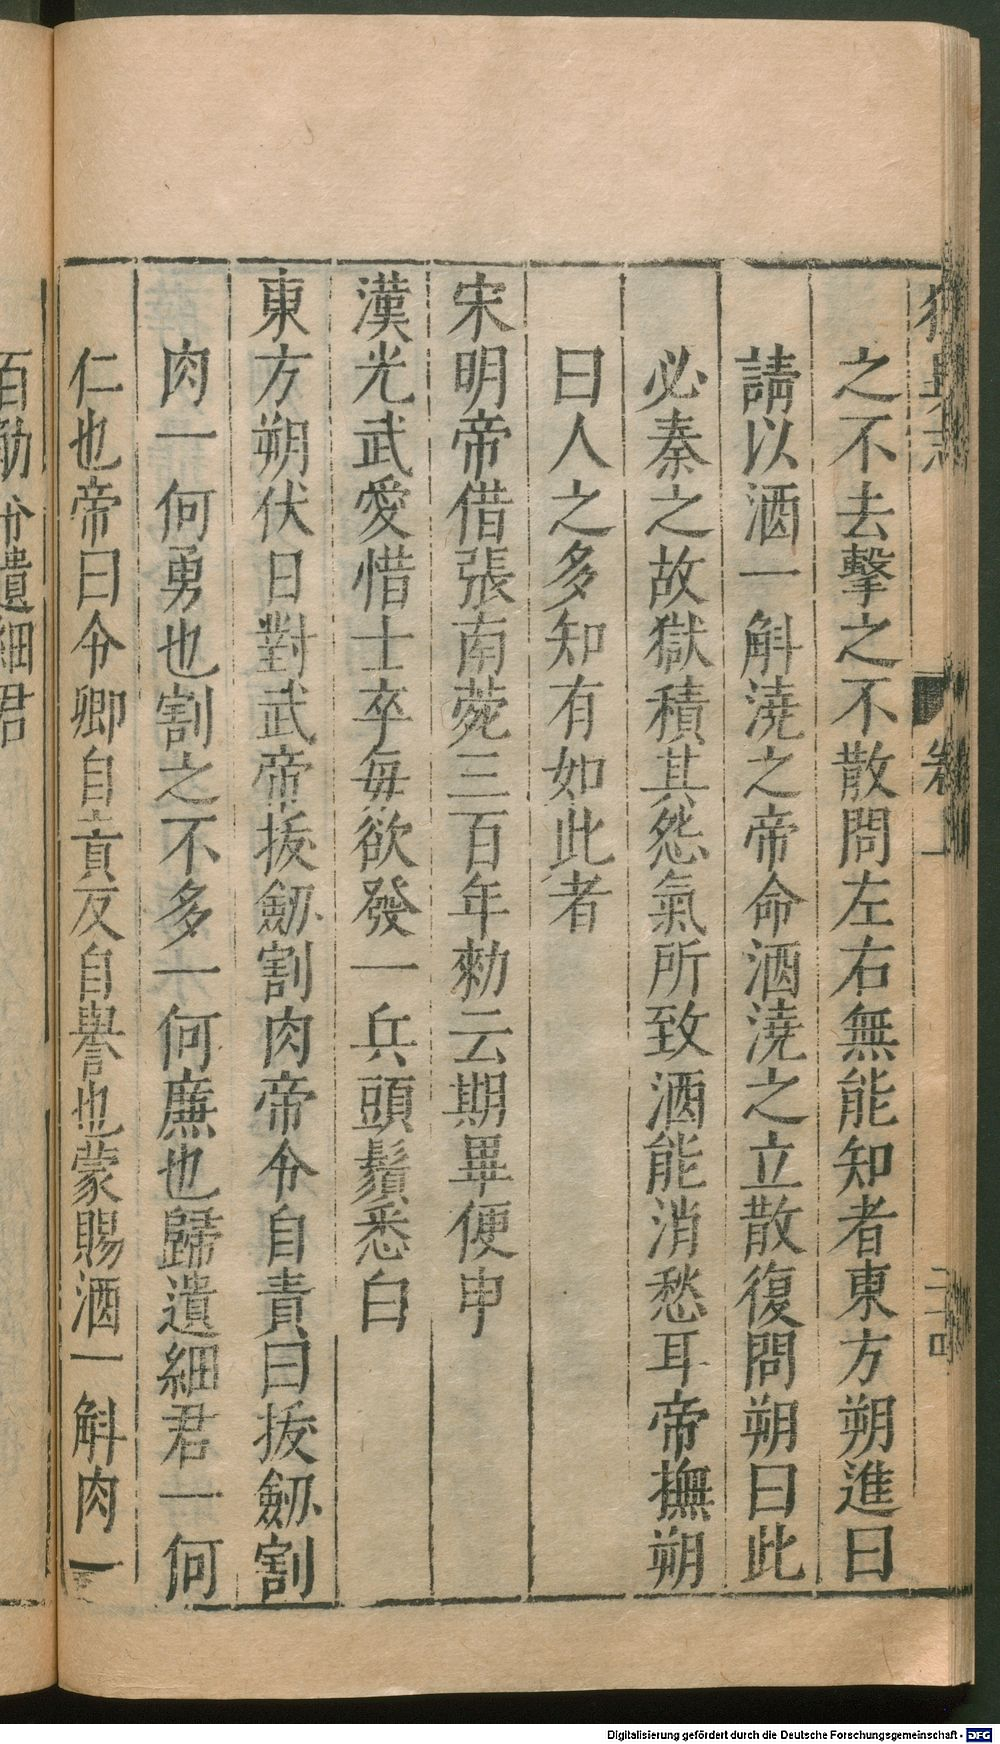 之不去擊之不散問左右無能知者東方朔進曰
請以酒一斛澆之帝命酒澆之立散復問朔曰此
必秦之故獄積其怨氣所致酒能消愁耳帝撫朔
曰人之多知有如此者
宋明帝借張南菀三百年勑云期畢便申
漢光武愛惜士卒每欲發一兵頭鬚悉白
東方朔伏日對武帝㧞劒割肉帝令自責曰㧞劒割
肉一何勇也割之不多一何廉也歸遺細君一何
仁也帝曰令卿自責反自譽也蒙賜酒一斛肉一
百觔令遺細君
Digitalisierung gefördert durch die Deutsche Forschungsgemeinschaft - DFG